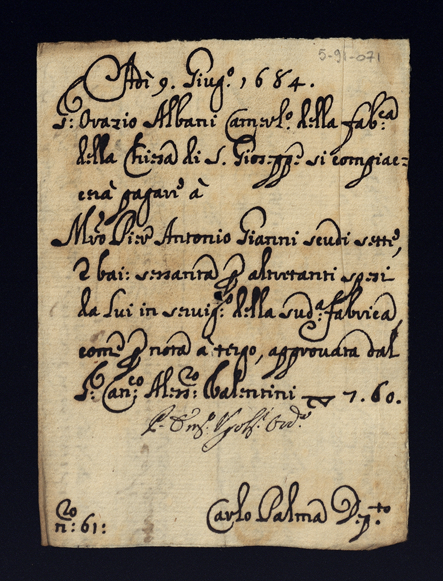 5-91-071
Adì 9. Giug.º 1684.
S.r Orazio Albani Camerl.º della fab.ca
della Chiesa di S. Gioseppe si compiac=
cerà pagare à
M.ro Pier Antonio Gianni scudi sette,
e bai: sessanta p altretanti spesi
da lui in servig.º della sud.a fabrica,
come p nota a tergo, approvata dal
S.r Can.co Aless.ro Valentini 7.60.
n.ro 61: Carlo Palma Dep.to